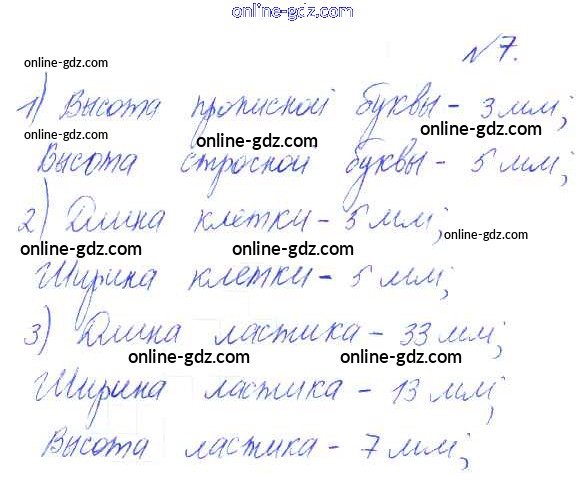 online-gdz.com
№7.
online-gdz.com
1) Высота прописной буквы - 3 мм;
online-gdz.com
online-gdz.com
Высота стросной буквы - 5 мм;
2) Длина клетки - 5 мм;
online-gdz.com
online-gdz.com
online-gdz.com
Ширина клетки - 5 мм;
3) Длина ластика - 33 мм;
online-gdz.com
online-gdz.com
Ширина ластика - 13 мм;
online-gdz.com
Высота ластика - 7 мм;